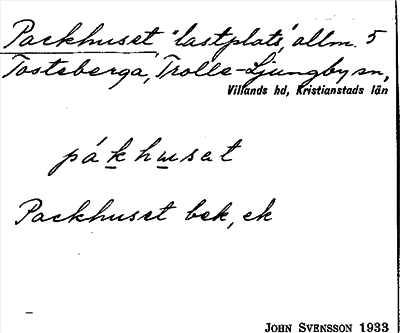 Packhuset, "lastplats", allm. 5
Tosteberga, Trolle-Ljungby sn,
Villands hd, Kristianstads län
pákhuset
Packhuset bek, ek
JOHN SVENSSON 1933